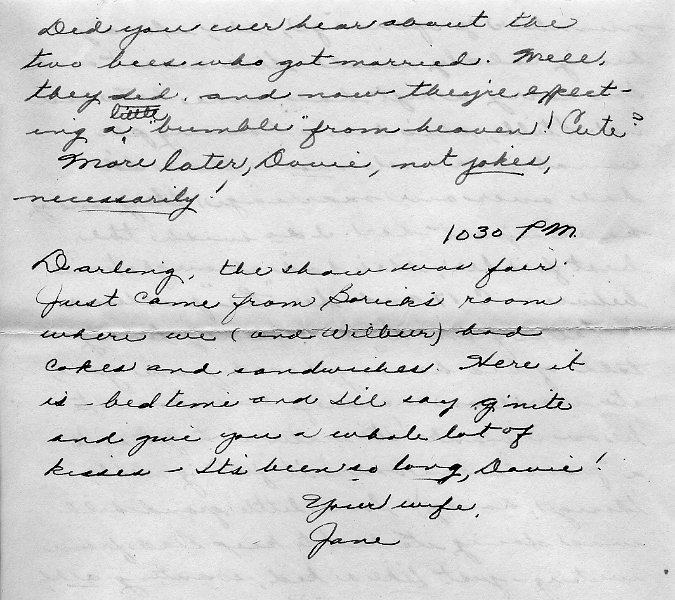 Did you ever hear about the
two bees who got married. Well,
they did, and now they're expect-
ing a little "bumble" from heaven! Cute?
More later, Davie, not jokes,
necessarily!
1030 P.M.
Darling, the show was fair.
Just came from Borick's room
where we (and Wilbur) had
cokes and sandwiches. Here it
is - bedtime and I'll say g'nite
and give you a whole lot of
kisses - It's been so long, Davie!
Your wife,
Jane